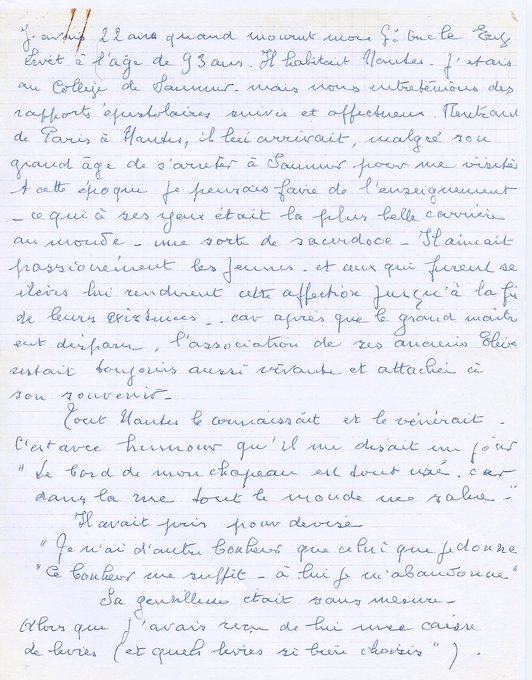 J'avais 22 ans quand mourut mon Gd Oncle
Livet à l'âge de 93 ans. Il habitait Nantes. J'étais
au Collège de Saumur. mais nous entretenions des
rapports épistolaires suivis et affectueux. Rentrant
de Paris à Nantes, il lui arrivait, malgré son
grand âge de s'arrêter à Saumur pour me visiter
A cette époque je pensais faire de l'enseignement
_ ce qui à ses yeux était la plus belle carrière
au monde _ une sorte de sacerdoce _ Il aimait
passionément les jeunes. et ceux qui furent ses
élèves lui rendirent cette affection jusqu'à la fin
de leurs existences _. car après que le grand maître
eut disparu, l'association de ses anciens Elèves
restait toujours aussi vivante et attachée à
son souvenir _
Tout Nantes le connaissait et le vénérait.
C'est avec humour qu'il me disait un jour
" Le bord de mon chapeau est tout usé. car
dans la rue tout le monde me salue _"
Il avait pris pour devise
" Je n'ai d'autre bonheur que celui que je donne
" Ce bonheur me suffit _ à lui je m'abandonne "
Sa gentillesse était sans mesure _
Alors que j'avais reçu de lui une caisse
de livres (et quels livres si bien choisis ").